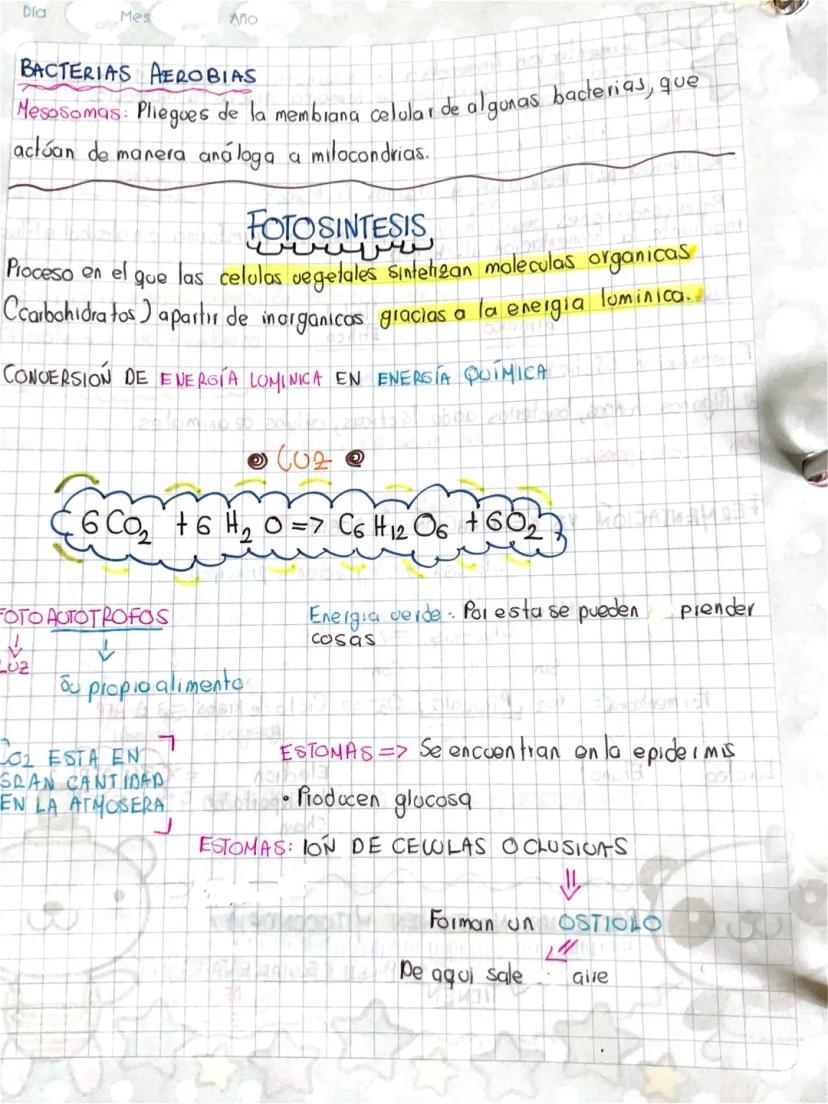 Día Mes Año
BACTERIAS AEROBIAS
Mesosomas: Pliegues de la membrana celular de algunas bacterias, que
actúan de manera análoga a mitocondrias.
FOTOSINTESIS
Proceso en el que las celulas vegetales sintetizan moleculas organicas
(carbohidratos) apartir de inorganicas gracias a la energia luminica.
CONVERSIÓN DE ENERGÍA LUMINICA EN ENERGÍA QUÍMICA
LUZ
6 CO₂ + 6 H₂ O => C₆ H₁₂ O₆ + 6 O₂
FOTOAUTOTROFOS
LUZ
Su propio alimento
Energia verde: Por esta se pueden prender
cosas
CO2 ESTA EN
GRAN CANTIDAD
EN LA ATMOSERA
ESTOMAS => Se encuentran en la epidermis
• Producen glucosa
ESTOMAS: IÓN DE CELULAS OCLUSIVAS
Forman un OSTIOLO
De aqui sale aire